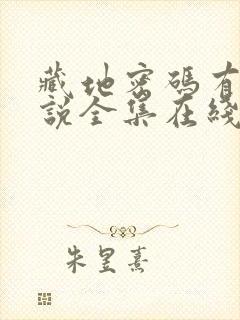 藏地密碼有
說全集在綫
朱昱熹